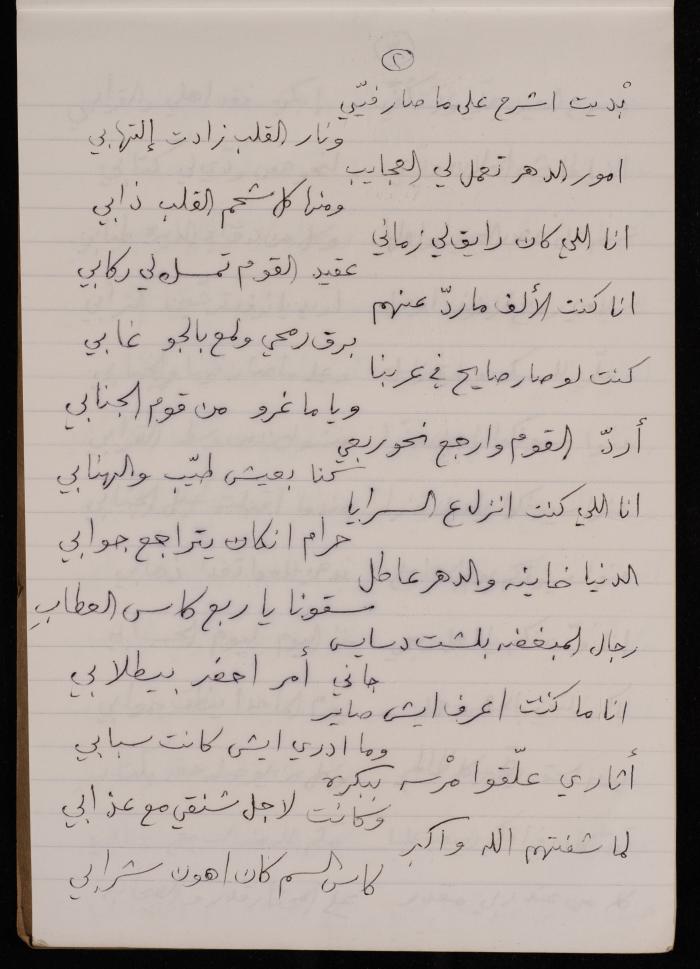 ٢
بْديت اشرح على ما صار فيّي
ونار القلب زادت إلتهابي
امور الدهر تعمل لي العجايب
ومنها كل شحم القلب ذابي
انا اللي كان رايق لي زماني
عقيد القوم تمسك لي ركابي
انا كنت لألف ما ردّ عنهم
برق رمحي ولمع بالجو غابي
كنت لو صار صايح في عربنا
ويا ما غرو من قوم الجنابي
أردّ القوم وارجع نحو ربعي
كنا بعيش طيّب والهنابي
انا اللي كنت انزل ع السرايا
حرام انكان يتراجع جوابي
الدنيا خاينه والدهر عاطل
سقونا يا ربع كاس العطابِ
رجال المبغضه بلشت دسايس
جاني أمر احضر بيطلابي
انا ما كنت اعرف ايش صاير
وما ادري ايش كانت سبابي
أثاري علّقوا مرْسه ببكره
وكانت لاجل شنقي مع عذابي
لما شفتهم الله واكبر
كاس السم كان اهون شرابي